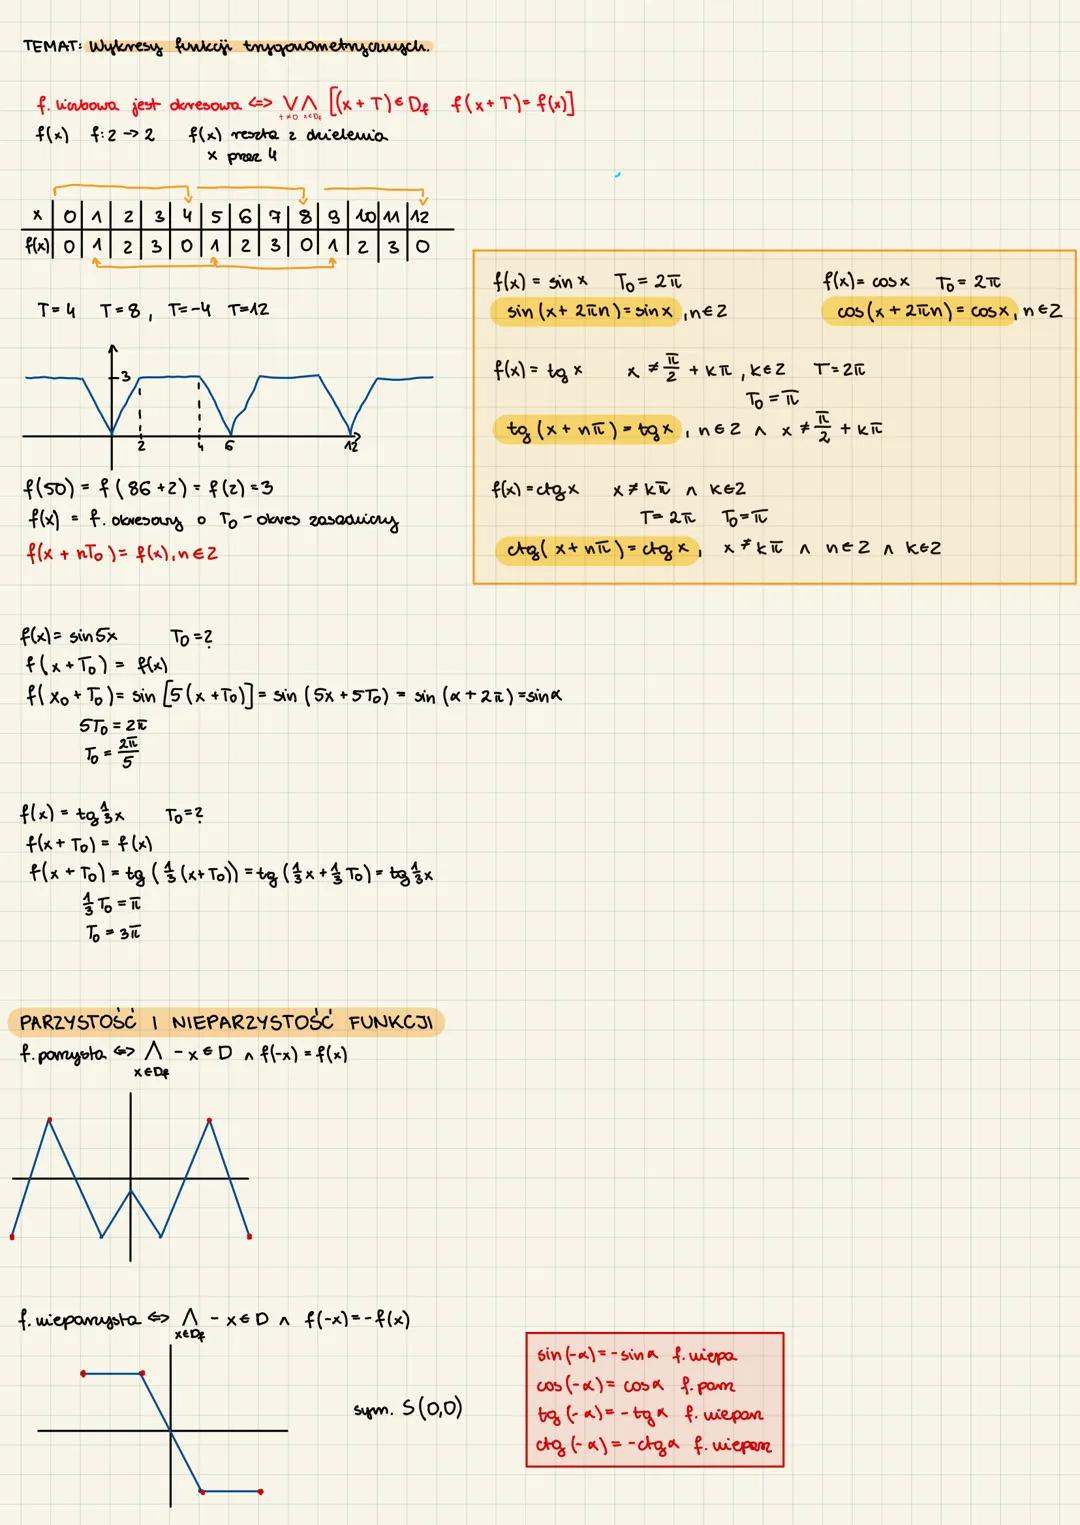 TEMAT: Wykresy funkcji trygonometrycznych.
f. liczbowa jest okresowa <=> ⋁ ⋀ [(x + T) ∈ Df f(x + T) = f(x)]
T≠0 x∈Df
f(x) f: Z -> Z f(x) reszta z dzielenia
x przez 4
x | 0 | 1 | 2 | 3 | 4 | 5 | 6 | 7 | 8 | 9 | 10 | 11 | 12
f(x) | 0 | 1 | 2 | 3 | 0 | 1 | 2 | 3 | 0 | 1 | 2 | 3 | 0
T = 4 T = 8, T = -4 T = 12
3
2 4 6 12
f(50) = f(86 + 2) = f(2) = 3
f(x) = f. okresowy o T₀ - okres zasadniczy
f(x + nT₀) = f(x), n ∈ Z
f(x) = sin x T₀ = 2π
sin (x + 2πn) = sin x, n ∈ Z
f(x) = cos x T₀ = 2π
cos (x + 2πn) = cos x, n ∈ Z
f(x) = tg x x ≠ π/2 + kπ, k ∈ Z T = 2π
T₀ = π
tg (x + nπ) = tg x, n ∈ Z ∧ x ≠ π/2 + kπ
f(x) = ctg x x ≠ kπ ∧ k ∈ Z
T = 2π T₀ = π
ctg (x + nπ) = ctg x, x ≠ kπ ∧ n ∈ Z ∧ k ∈ Z
f(x) = sin 5x T₀ = ?
f(x + T₀) = f(x)
f(x₀ + T₀) = sin [5(x + T₀)] = sin (5x + 5T₀) = sin (α + 2π) = sin α
5T₀ = 2π
T₀ = 2π/5
f(x) = tg 1/3 x T₀ = ?
f(x + T₀) = f(x)
f(x + T₀) = tg (1/3 (x + T₀)) = tg (1/3 x + 1/3 T₀) = tg 1/3 x
1/3 T₀ = π
T₀ = 3π
PARZYSTOŚĆ I NIEPARZYSTOŚĆ FUNKCJI
f. parzysta <=> ⋀ -x ∈ D ∧ f(-x) = f(x)
x∈Df
f. nieparzysta <=> ⋀ -x ∈ D ∧ f(-x) = -f(x)
x∈Df
sym. S(0,0)
sin (-α) = -sin α f. niepa
cos (-α) = cos α f. parz
tg (-α) = -tg α f. nieparz
ctg (-α) = -ctg α f. nieparz